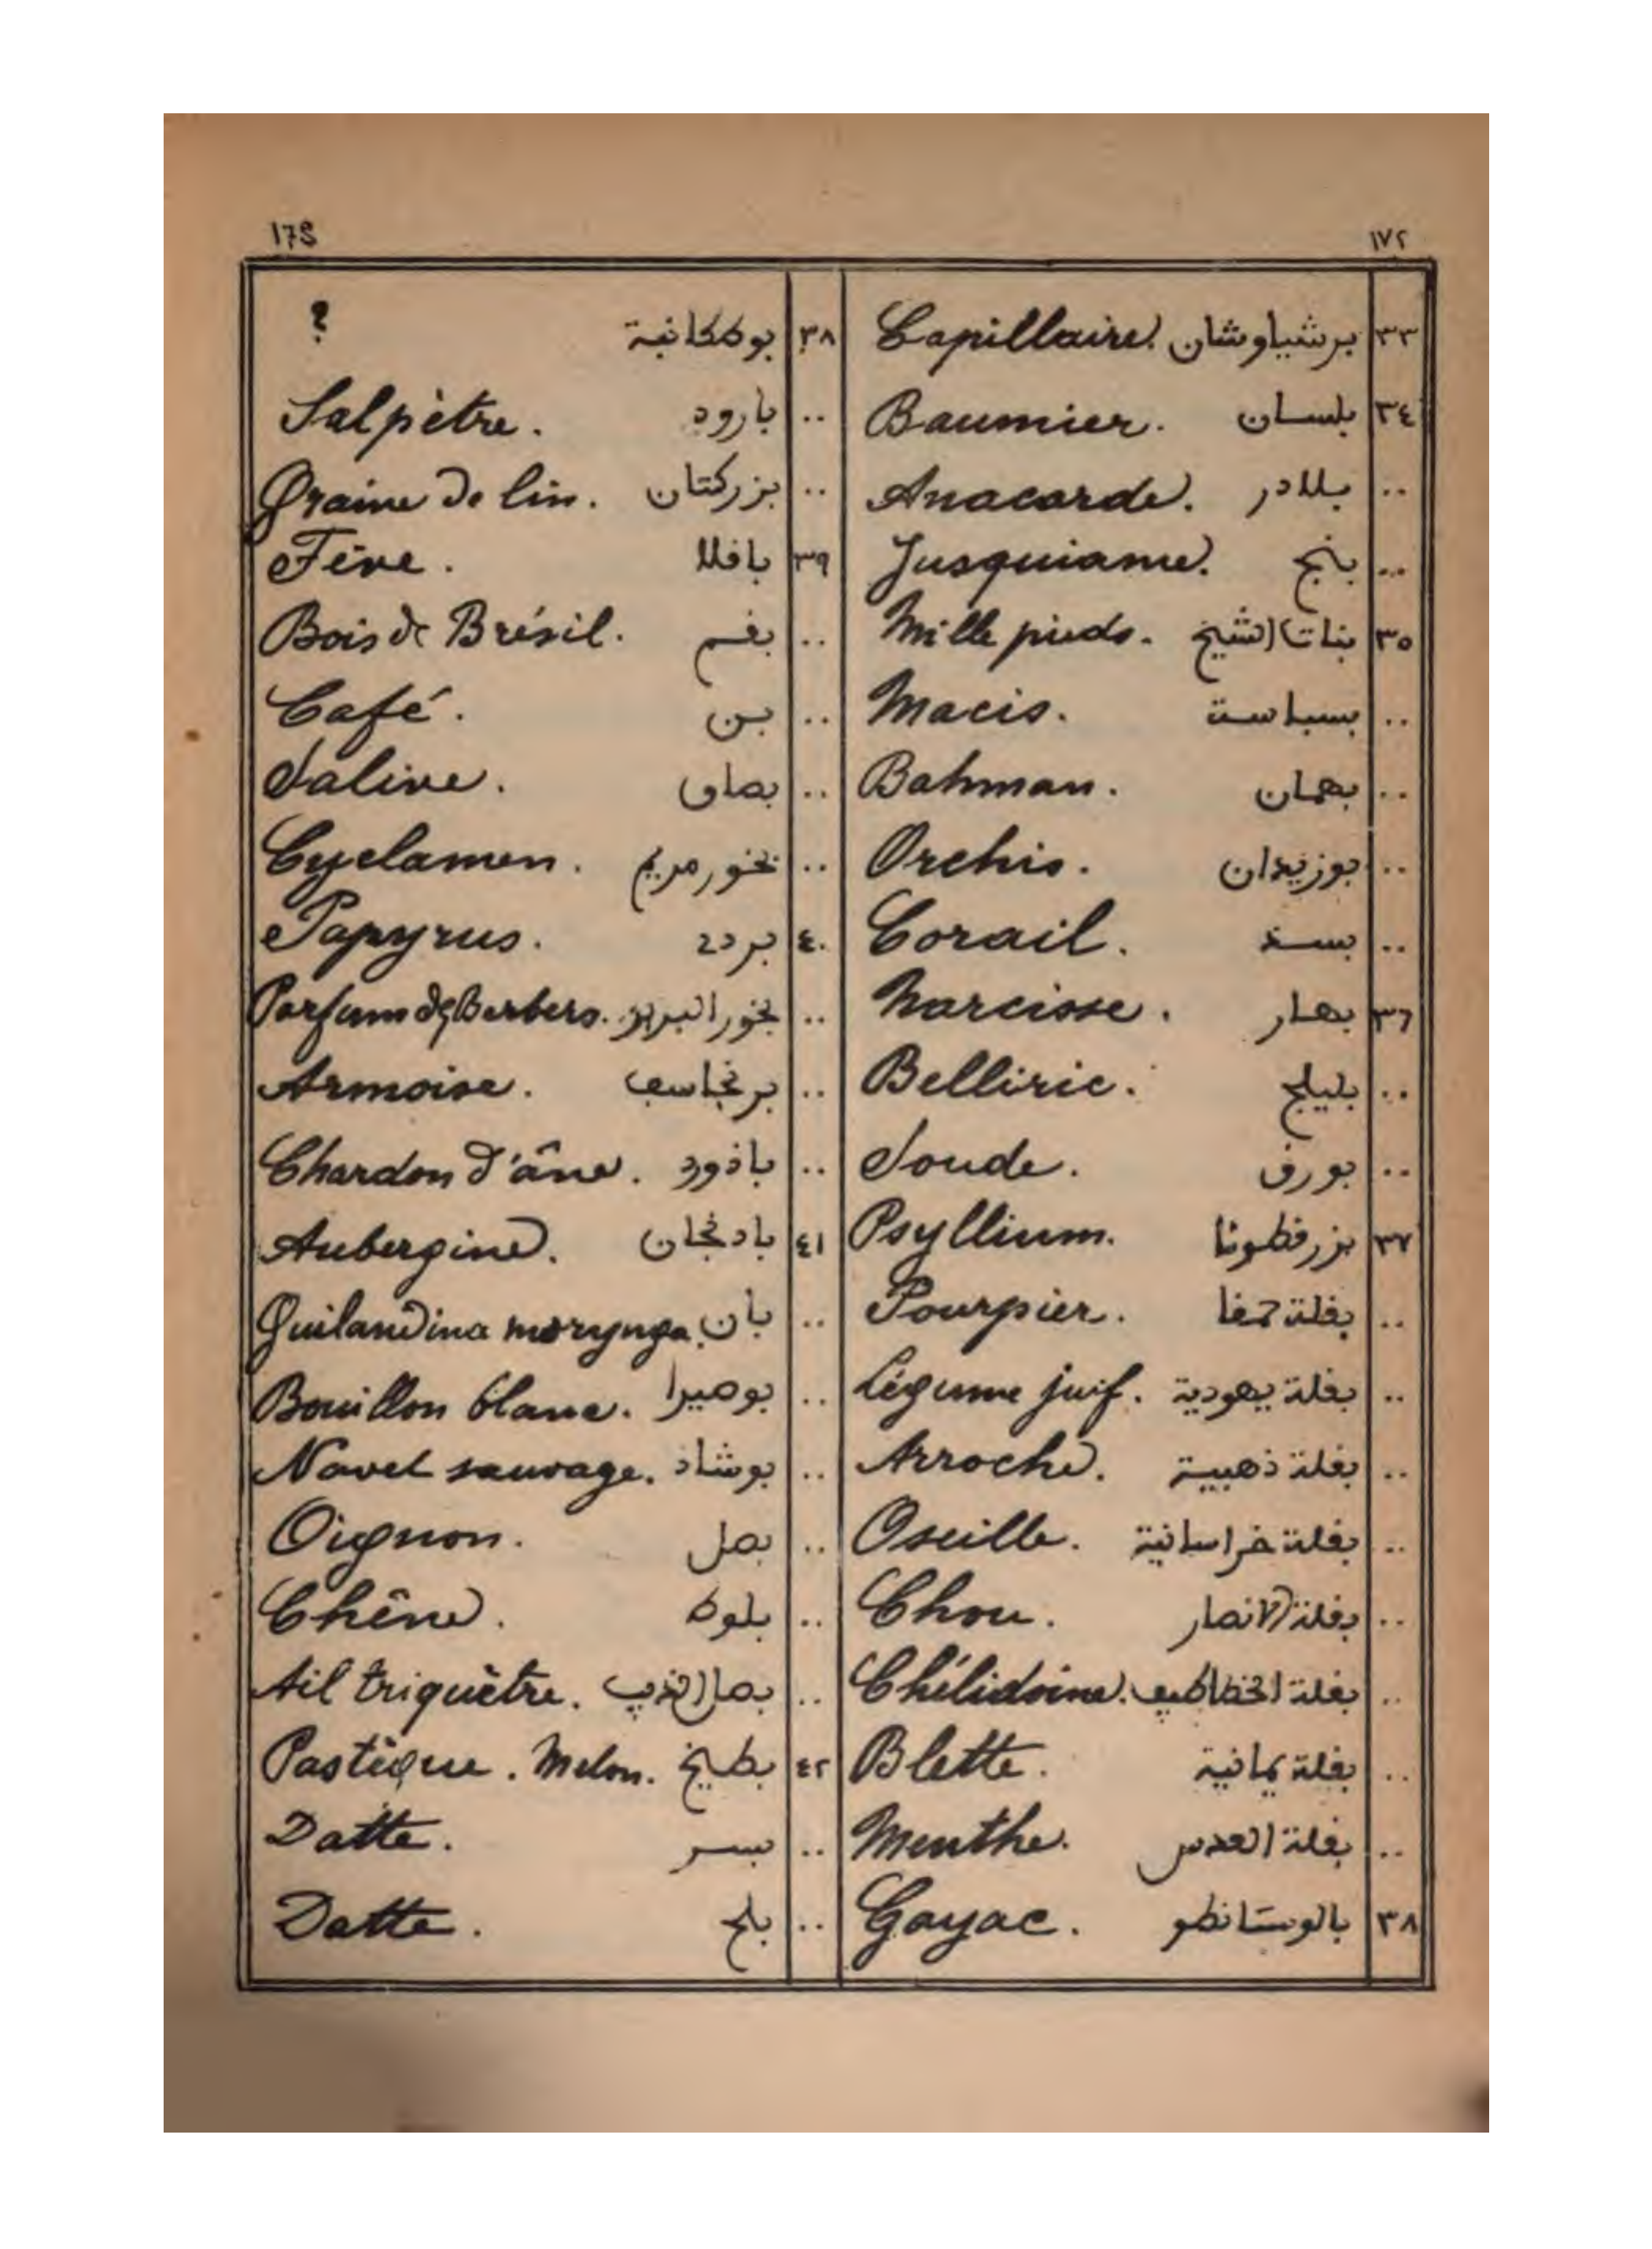 173
١٧٢
٣٣ برشياوشان Capillaire.
٣٤ بلسان Baumier.
.. بلادر Anacarde.
.. بنج Jusquiame.
٣٥ بنات الشيخ Mille pieds.
.. بسباسة Macis.
.. بهمان Bahman.
.. بوزيدان Orchis.
.. بسد Corail.
٣٦ بهار Narcisse.
.. بليلج Belliric.
.. بورق Soude.
٣٧ بزرقطونا Psyllium.
.. بقلة حمقا Pourpier.
.. بقلة يهودية Légume juif.
.. بقلة ذهبية Arroche.
.. بقلة خراسانية Oseille.
.. بقلة الانصار Chou.
.. بقلة الخطاطيف Chélidoine.
.. بقلة يمانية Blette.
.. بقلة العدس Menthe.
٣٨ بالوسانطو Gayac.
٣٨ ?
.. بارود Salpètre.
.. بزركتان Graine de lin.
٣٩ باقلا Fève.
.. بقم Bois de Brésil.
.. بن Café.
.. بصاق Salive.
.. بخور مريم Cyclamen.
٤٠ بردي Papyrus.
.. بخور البربر Parfum des Berbers.
.. برنجاسف Armoise.
.. باذورد Chardon d'âne.
٤١ بادنجان Aubergine.
.. بان Guilandina morynga.
.. بوصيرا Bouillon blanc.
.. بوشاد Navet sauvage.
.. بصل Oignon.
.. بلوط Chêne.
.. بصل الذيب Ail triquètre.
٤٢ بطيخ Pastèque. Melon.
.. بسر Datte.
.. بلح Datte.